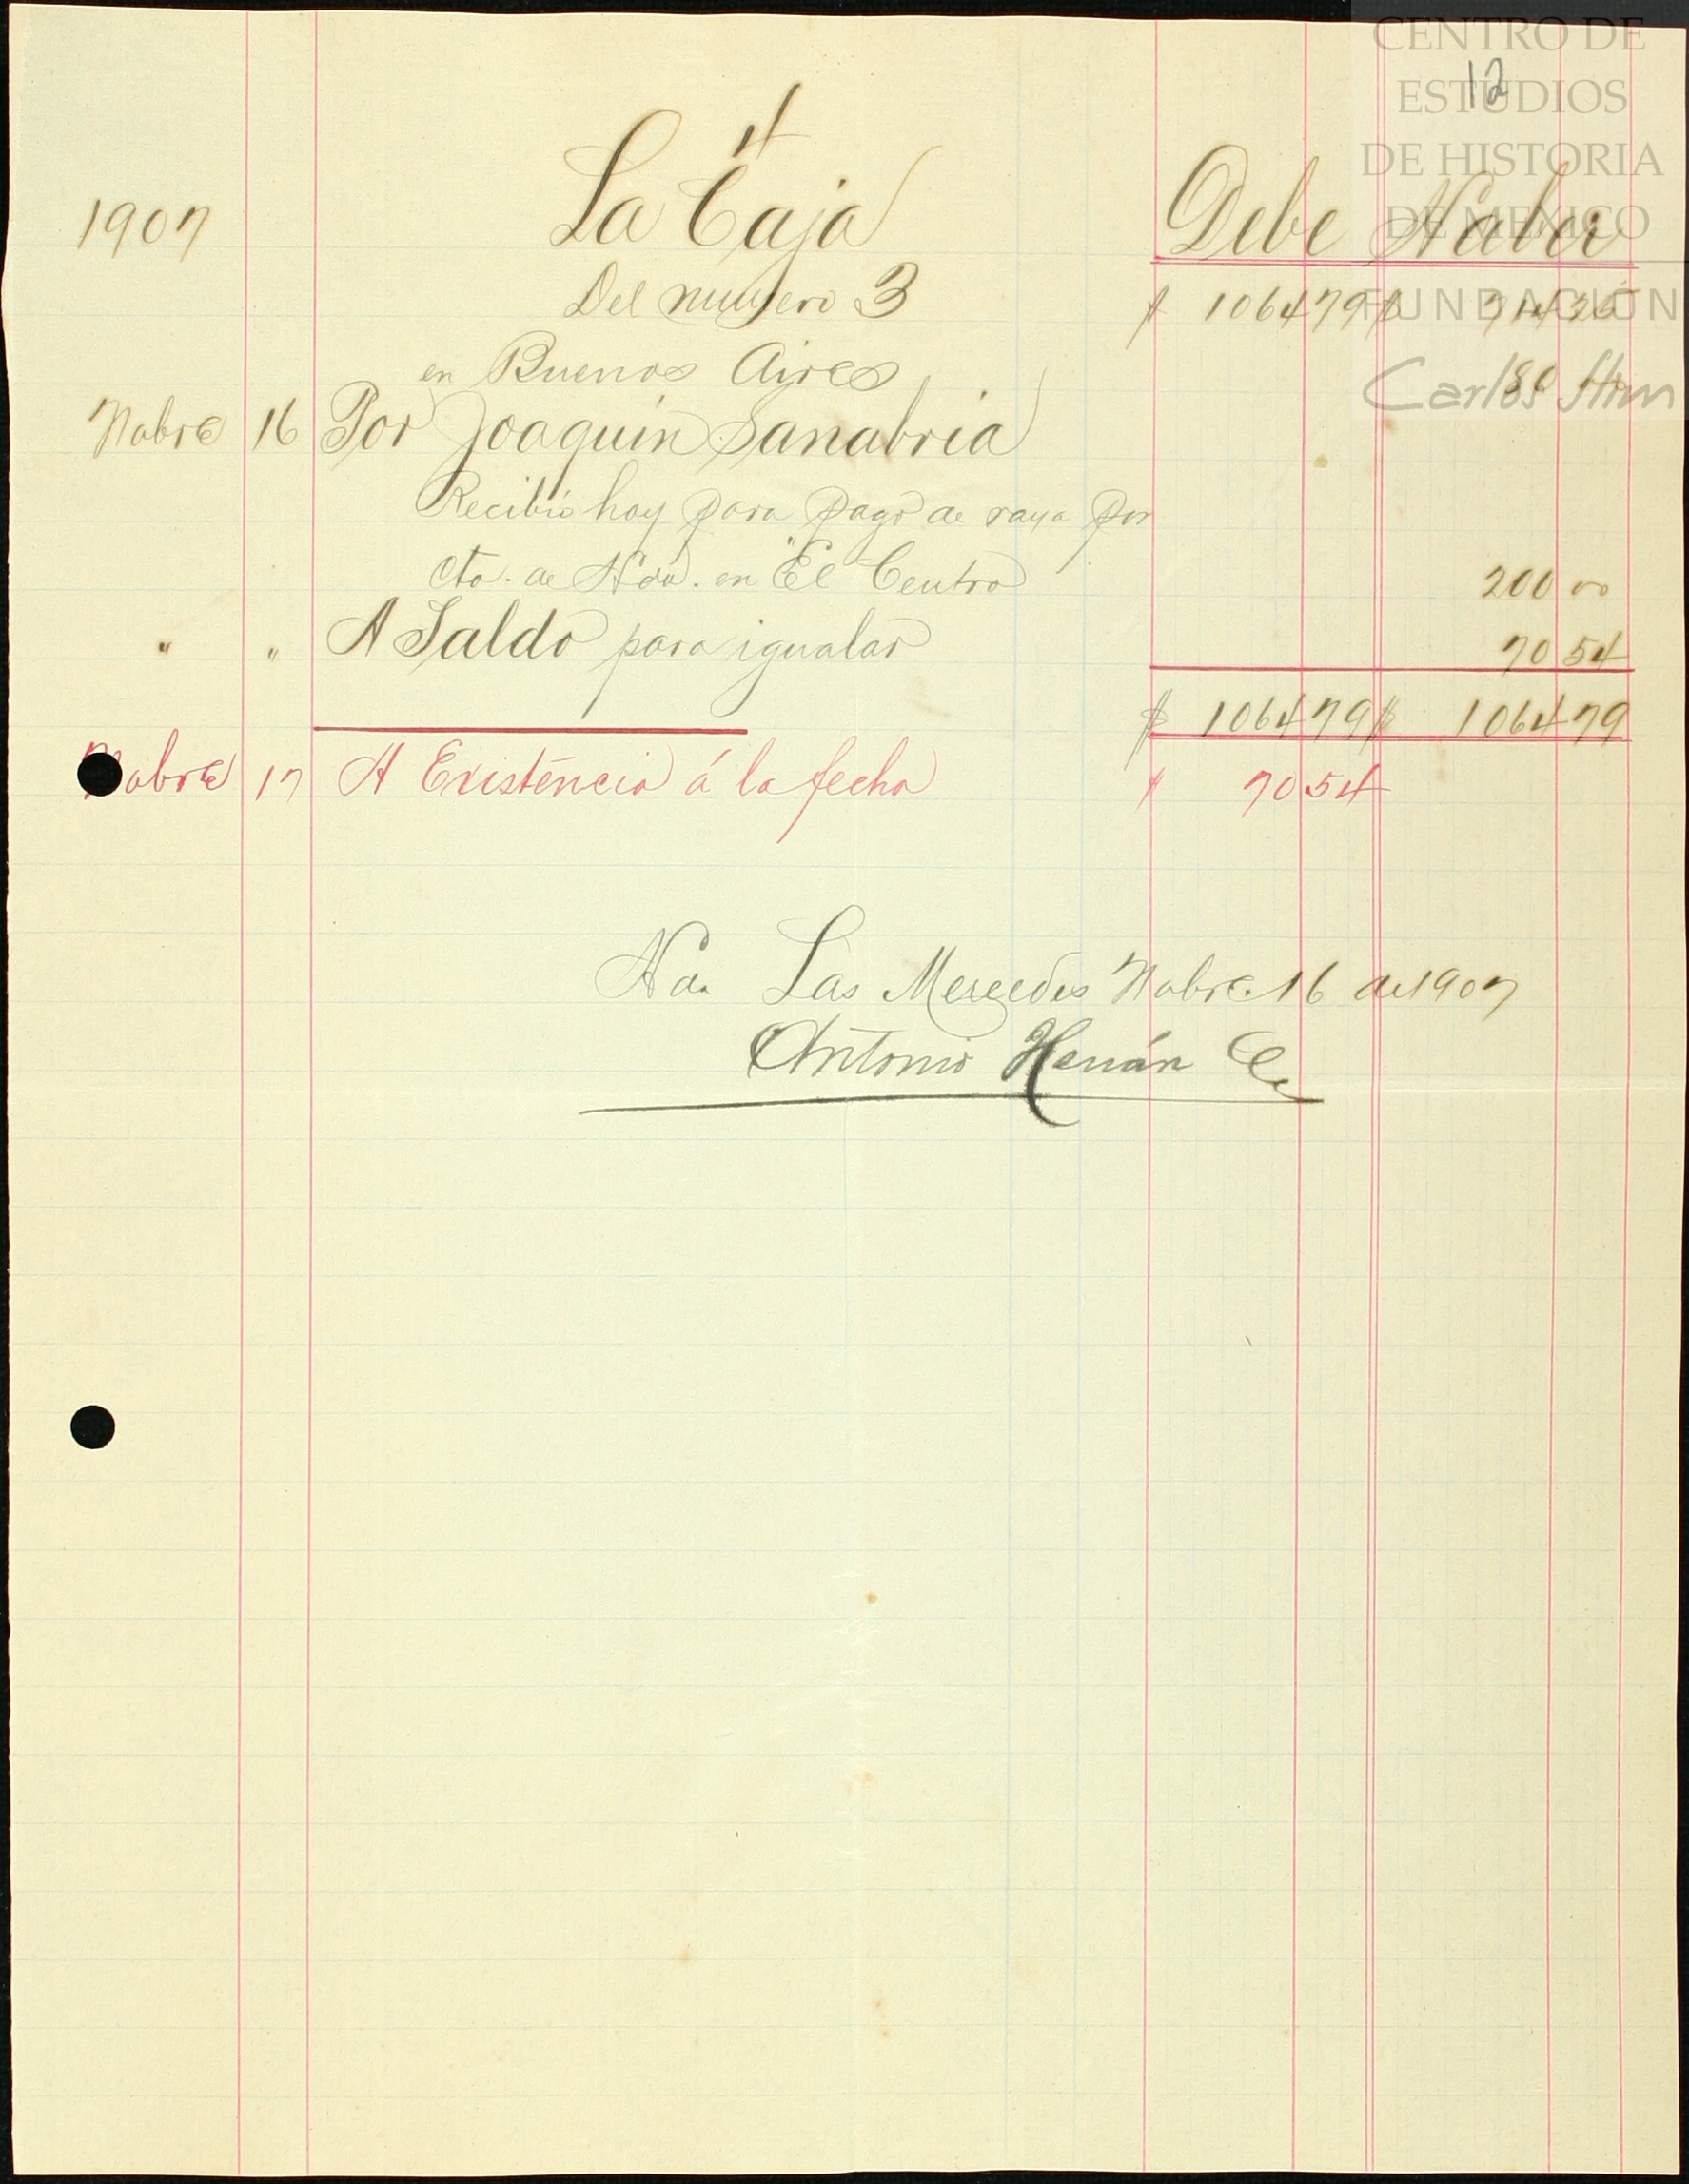 CENTRO DE
ESTUDIOS
DE HISTORIA
DE MEXICO
FUNDACIÓN
Carlos Slim
12
4
1907 La Caja Debe Haber
Del numero 3 $ 1064 79 $ 714 25
en Buenos Aires 80
Nobre 16 Por Joaquín Sanabria
Recibió hoy para pago de raya por
cta. de Hda. en "El Centro 200 00
" " A Saldo para igualar 70 54
$ 1064 79 $ 1064 79
Nobre 17 A Existencia á la fecha $ 70 54
Hda. Las Mercedes Nobre. 16 de 1907
Antonio